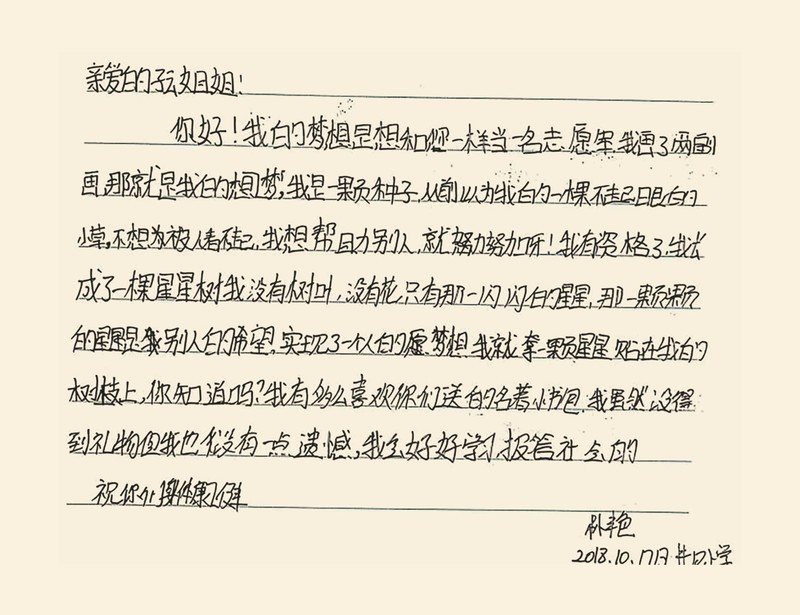 亲爱的云姐姐！
你好！我的梦想是想和您一样当一名志愿军.我画了两副
画,那就是我的想梦,我是一颗种子,从前以为我的一棵不起眼的
小草,不想为被人看不起,我想帮助别人,就努力努力呀！我有资格了,我长
成了一棵星星树我没有树叶,没有花,只有那一闪闪的星星,那一颗颗
的星星是我别人的希望,实现了一个人的愿梦想我就拿一颗星星贴在我的
树枝上,你知道吗?我有多么喜欢你们送的名著,书包,我虽然没得
到礼物但我也没有一点遗憾,我会好好学习报答社会的
祝你们身体康健
艳
2018.10.17日 井口小学